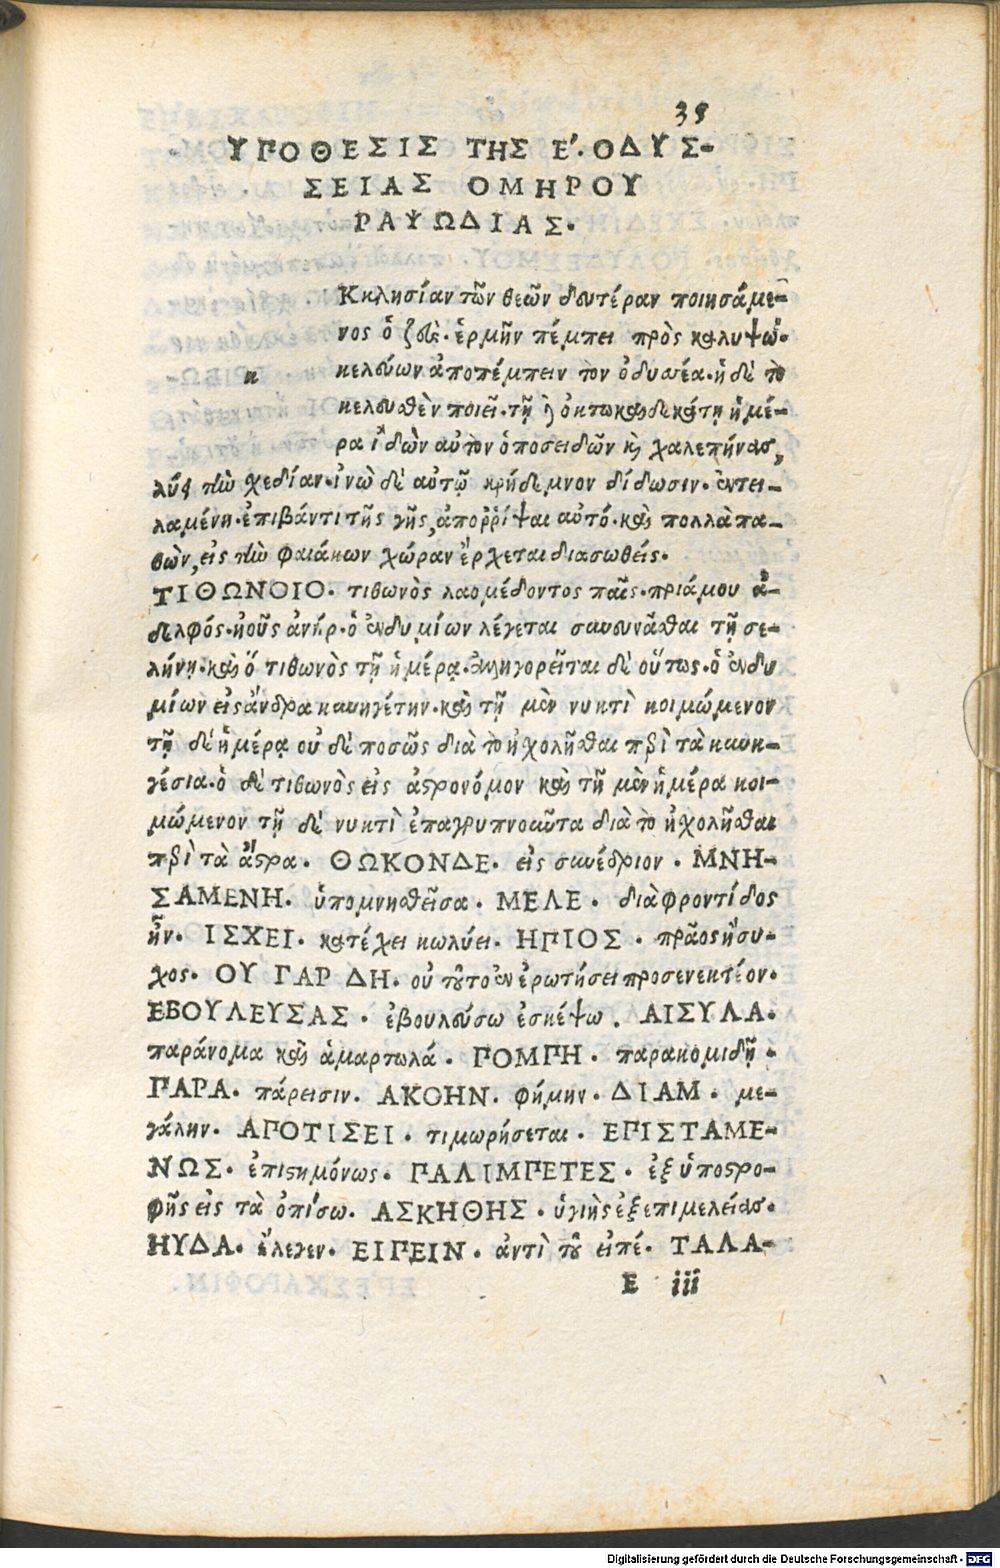 35
ΥΠΟΘΕΣΙΣ ΤΗΣ Ε´. ΟΔΥΣ-
ΣΕΙΑΣ ΟΜΗΡΟΥ
ΡΑΨΩΔΙΑΣ.
Κκλησίαν τῶν θεῶν δευτέραν ποιησάμε-
νος ὁ ζεὺς. ἑρμῆν πέμπει πρὸς καλυψώ.
κελεύων ἀποπέμπειν τὸν ὀδυσέα. ἡ δὲ τὸ
κ
κελευθὲν ποιεῖ. τῇ ὀκτωκαιδεκάτῃ ἡμέ-
ρα ἰδὼν αὐτὸν ὁ ποσειδῶν καὶ χαλεπήνας,
λύει τὴν χεδίαν. ἰνὼ δὲ αὐτῷ κρήδεμνον δίδωσιν. ἐντει-
λαμένη. ἐπιβάντι τῆς γῆς, ἀπορῤῥίψαι αὐτό. καὶ πολλὰ πα-
θὼν, εἰς τὴν φαιάκων χώραν ἔρχεται διασωθείς.
ΤΙΘΩΝΟΙΟ. τιθωνὸς λαομέδοντος παῖς. πριάμου ἀ-
δελφός. ἠοῦς ἀνήρ. ὁ ἐνδυμίων λέγεται συνευνᾶσθαι τῇ σε-
λήνῃ. καὶ ὅ τιθωνὸς τῇ ἡμέρᾳ. ἀλληγορεῖται δὲ οὕτως. ὁ ἐνδυ
μίων εἰς ἄνδρα κυνηγέτην. καὶ τῇ μὲν νυκτὶ κοιμώμενον
τῇ δὲ ἡμέρᾳ οὐδέ ποσῶς διὰ τὸ ἠχολῆσθαι περὶ τὰ κυνη-
γέσια. ὁ δὲ τιθωνὸς εἰς ἀστρονόμον καὶ τῇ μὲν ἡμέρα κοι-
μώμενον τῇ δὲ νυκτὶ ἐπαγρυπνοῦντα διὰ τὸ ἠχολῆσθαι
περὶ τὰ ἄστρα. ΘΩΚΟΝΔΕ. εἰς συνέδριον. ΜΝΗ-
ΣΑΜΕΝΗ. ὑπομνησθεῖσα. ΜΕΛΕ. διὰ φροντίδος
ἦν. ΙΣΧΕΙ. κατέχει κωλύει. ΗΠΙΟΣ. πρᾶος ἥσυ-
χος. ΟΥ ΓΑΡ ΔΗ. οὐ τοῦτο ἐν ἐρωτήσει προσενεκτέον.
ΕΒΟΥΛΕΥΣΑΣ. ἐβουλεύσω ἐσκέψω. ΑΙΣΥΛΑ.
παράνομα καὶ ἁμαρτωλά. ΠΟΜΠΗ. παρακομιδῇ.
ΠΑΡΑ. πάρεισιν. ΑΚΟΗΝ. φήμην. ΔΙΑΜ. με-
γάλην. ΑΠΟΤΙΣΕΙ. τιμωρήσεται. ΕΠΙΣΤΑΜΕ-
ΝΩΣ. ἐπιστημόνως. ΠΑΛΙΜΠΕΤΕΣ. ἐξ ὑποστρο-
φῆς εἰς τὰ ὀπίσω. ΑΣΚΗΘΗΣ. ὑγιὴς ἐξ ἐπιμελείας.
ΗΥΔΑ. ἔλεγεν. ΕΙΠΕΙΝ. ἀντὶ τοῦ εἰπέ. ΤΑΛΑ-
E iii
Digitalisierung gefördert durch die Deutsche Forschungsgemeinschaft - DFG